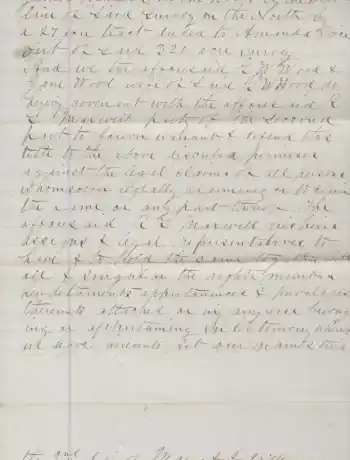 line of said survey on the North by
a 27 acre tract deeded to Amanda
out of said 320 acre survey
And we the aforesaid E W Wood &
Jane Wood wife of said E W Wood do
hereby covenant with the aforesaid R
L Maxwell party of the second
part to forever warrant & defend the
title to the above described premises
against the legal claims of all persons
whomsoever rightly claiming or to claim
the same or any part thereof The
aforesaid R L Maxwell his heirs
assigns & legal representatives to
have & to hold the same together with
all & singular the rights members
appurtenances & privileges
thereunto attached or in any wise belong
ing or appertaining In testimony whereof
we have hereunto set our hands this